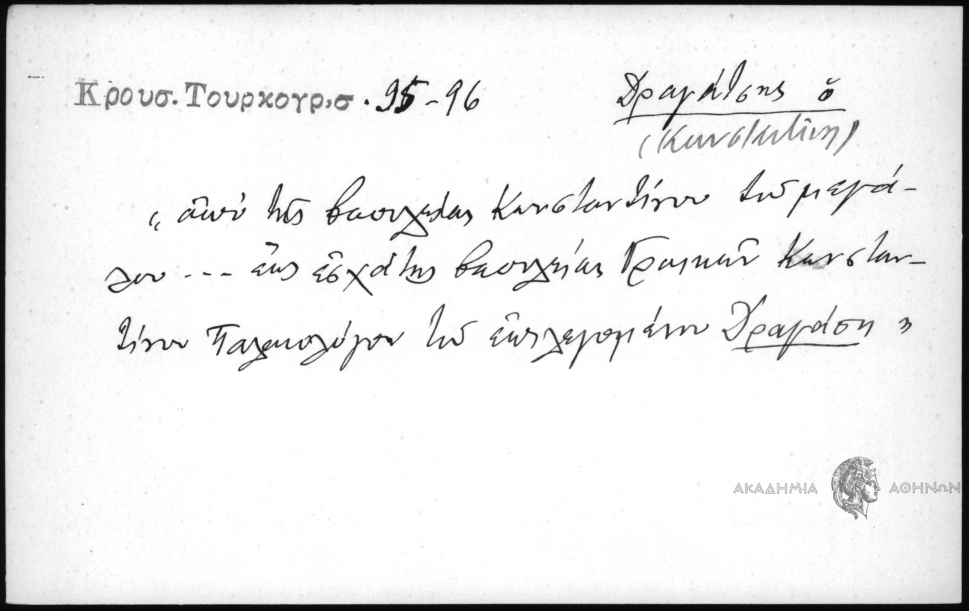 Κρουσ. Τουρκογρ,σ . 95 - 96
Δραγάτσης ὁ
(Κωνσταντῖνος)
" ἀπὸ τῆς βασιλείας Κωνσταντίνου τοῦ μεγά-
λου --- ἕως ἐσχάτης βασιλείας Γραικῶν Κωνσταν-
τίνου Παλαιολόγου τοῦ ἐπιλεγομένου Δραγάση "
ΑΚΑΔΗΜΙΑ ΑΘΗΝΩΝ